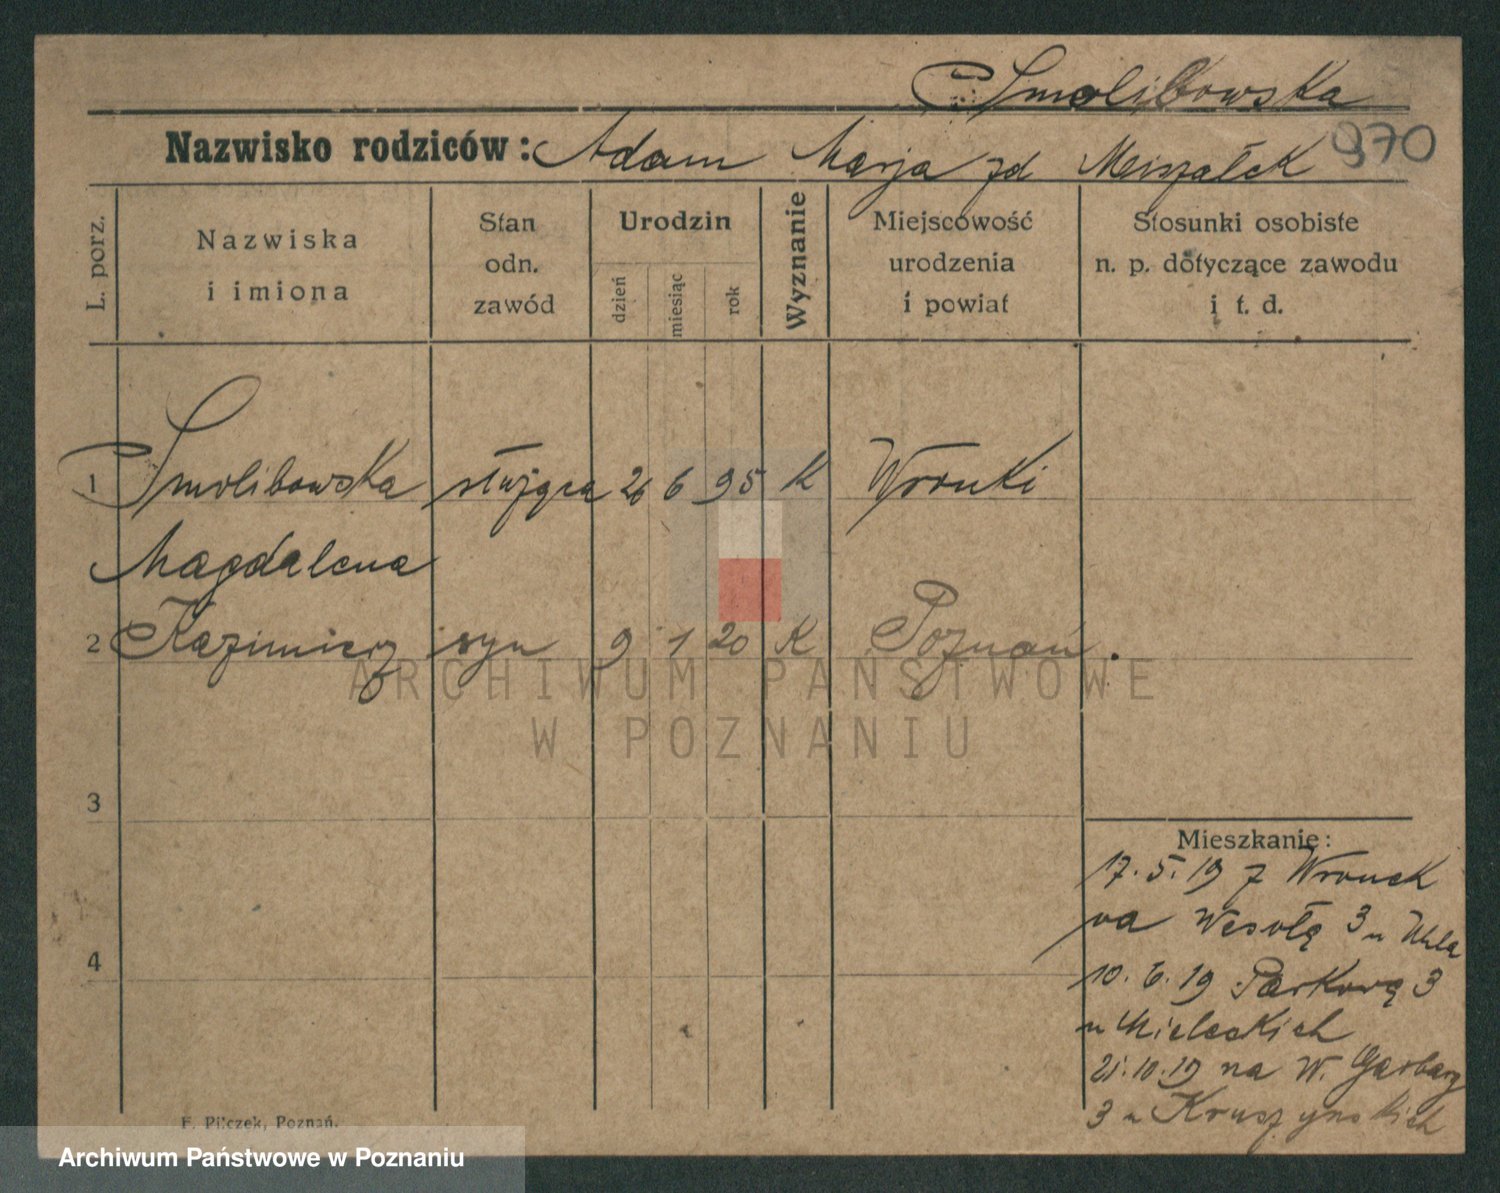 Smolibowska
970
Nazwisko rodziców: Adam Marja zd Marszałek
L. porz.
Nazwiska i imiona
Stan odn. zawód
Urodzin
dzień
miesiąc
rok
Wyznanie
Miejscowość urodzenia i powiat
Stosunki osobiste n. p. dotyczące zawodu i t. d.
1 Smolibowska służąca 26 6 95 K Wronki
Magdalena
2 Kazimierz syn 9 1 20 K Poznań.
3
4
Mieszkanie:
17.5.19 z Wronek
na Wesołą 3 u
10.6.19 Parkową 3
u Mieleckich
21.10.19 na W. Garbary
3 u Kruszynskich
F. Pilczek, Poznań.
ARCHIWUM PAŃSTWOWE
W POZNANIU
Archiwum Państwowe w Poznaniu